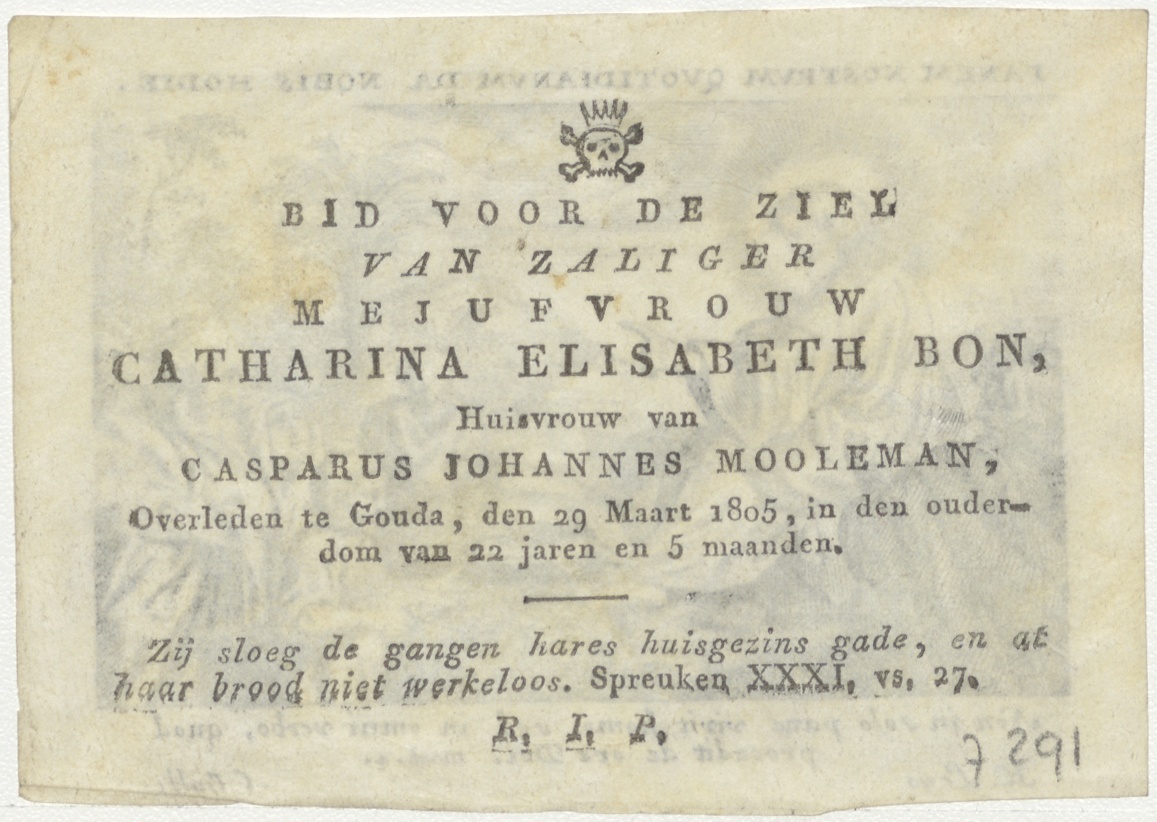 BID VOOR DE ZIEL
VAN ZALIGER
MEJUFVROUW
CATHARINA ELISABETH BON,
Huisvrouw van
CASPARUS JOHANNES MOOLEMAN,
Overleden te Gouda, den 29 Maart 1805, in den ouder-
dom van 22 jaren en 5 maanden.
Zij sloeg de gangen hares huisgezins gade, en at
haar brood niet werkeloos. Spreuken XXXI, vs. 27.
R. I. P.
7291